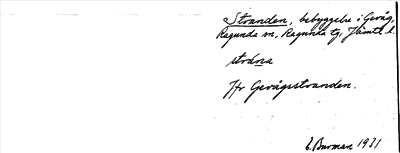 Stranden, bebyggelse i Gevåg,
Ragunda sn, Ragunda tg, Jämtl. l.
strána
Jfr Gevågsstranden.
E. Burman 1931